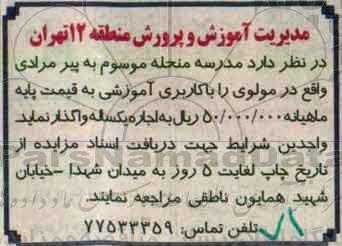 مدیریت آموزش و پرورش منطقه ۱۲ تهران
در نظر دارد مدرسه منحله موسوم به پیر مرادی
واقع در مولوی را باکاربری آموزشی به قیمت پایه
ماهیانه ۵۰/۰۰۰/۰۰۰ ریال به اجاره یکساله واگذار نماید.
واجدین شرایط جهت دریافت اسناد مزایده از
تاریخ چاپ لغایت ۵ روز به میدان شهدا -خیابان
شهید همایون ناطقی مراجعه نمایند.
تلفن تماس: ۷۷۵۳۳۳۵۹
ParsNamadData